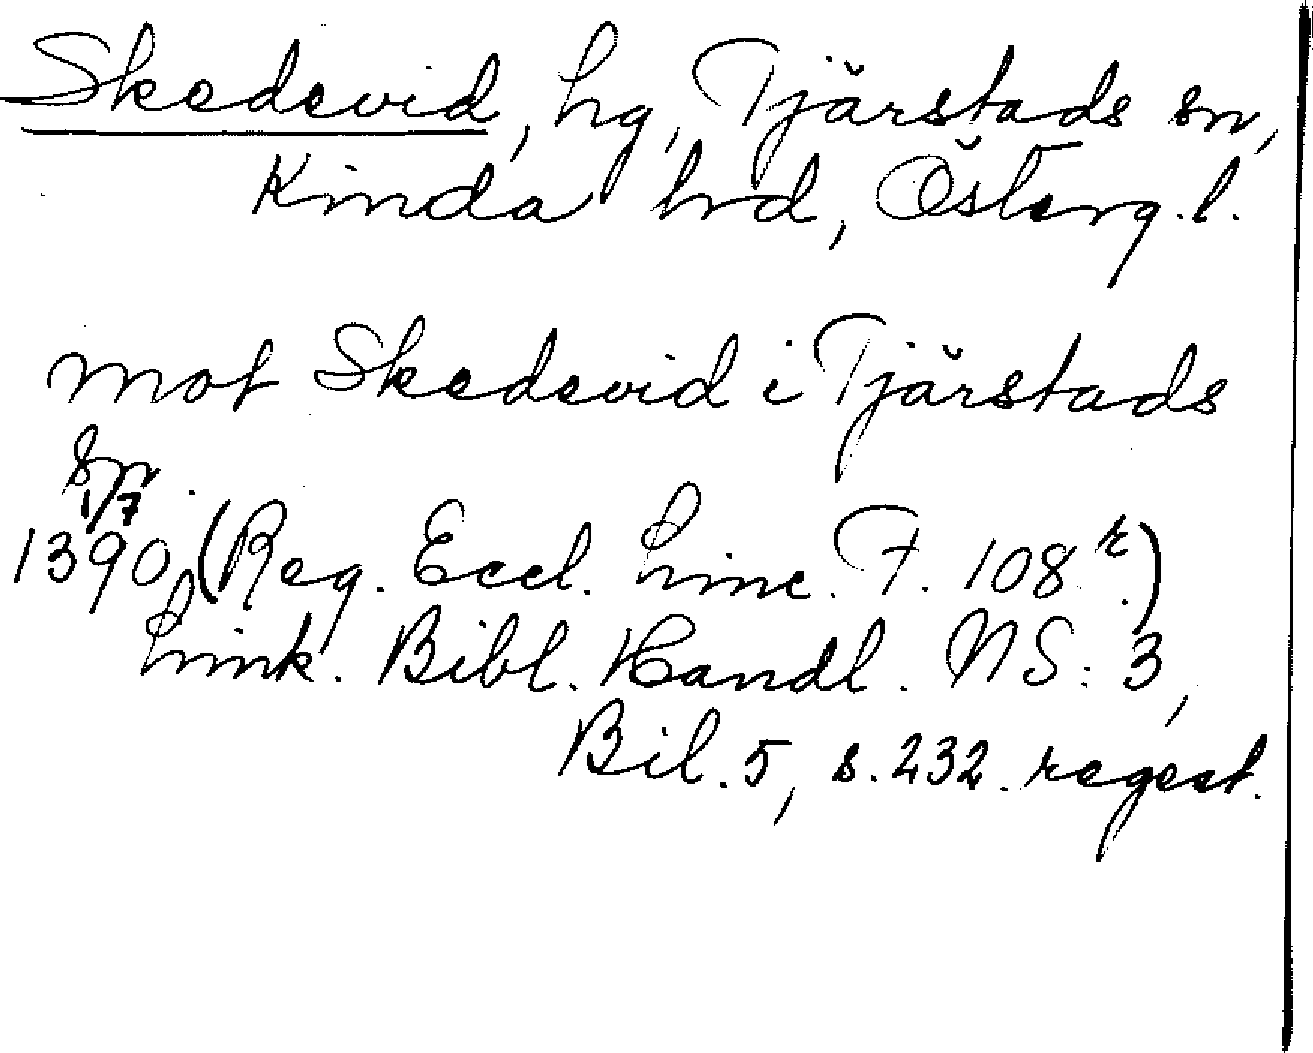 Skedevid, hg, Tjärstads sn,
Kinda hrd, Österg.l.
mot Skedevid i Tjärstads
sn.
1/7
1390 (Reg. Eccl. Linc. F. 108 r.)
Link. Bibl. Handl. NS: 3,
Bil. 5, s. 232. regest.